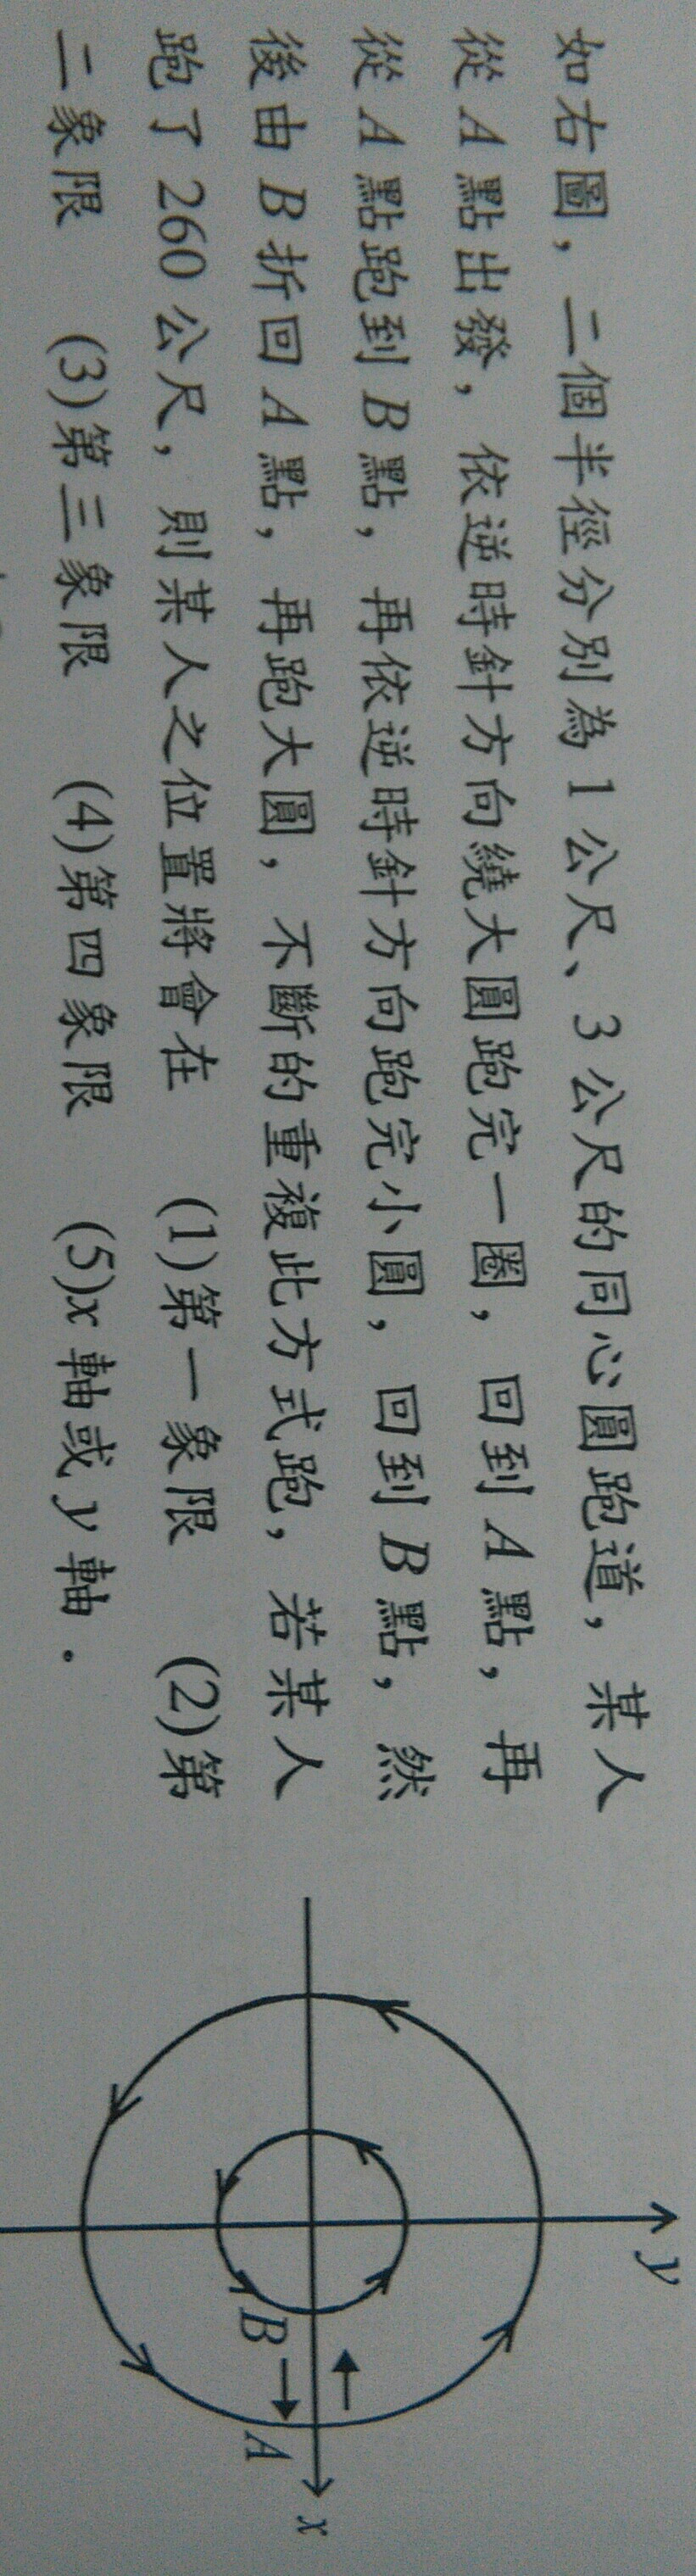 如右圖，二個半徑分別為 1 公尺、3 公尺的同心圓跑道，某人
從 A 點出發，依逆時針方向繞大圓跑完一圈，回到 A 點，再
從 A 點跑到 B 點，再依逆時針方向跑完小圓，回到 B 點，然
後由 B 折回 A 點，再跑大圓，不斷的重複此方式跑，若某人
跑了 260 公尺，則某人之位置將會在　(1)第一象限　(2)第
二象限　(3)第三象限　(4)第四象限　(5)x 軸或 y 軸．
y
B
A
x